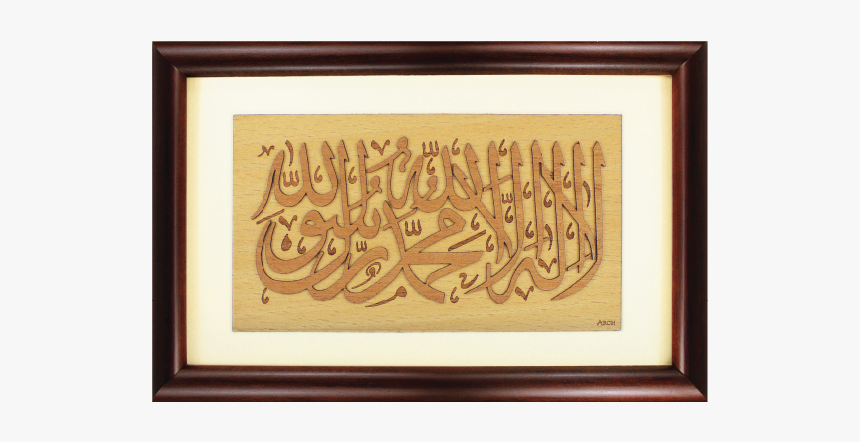 لا إله إلا الله محمد رسول الله
ARCH